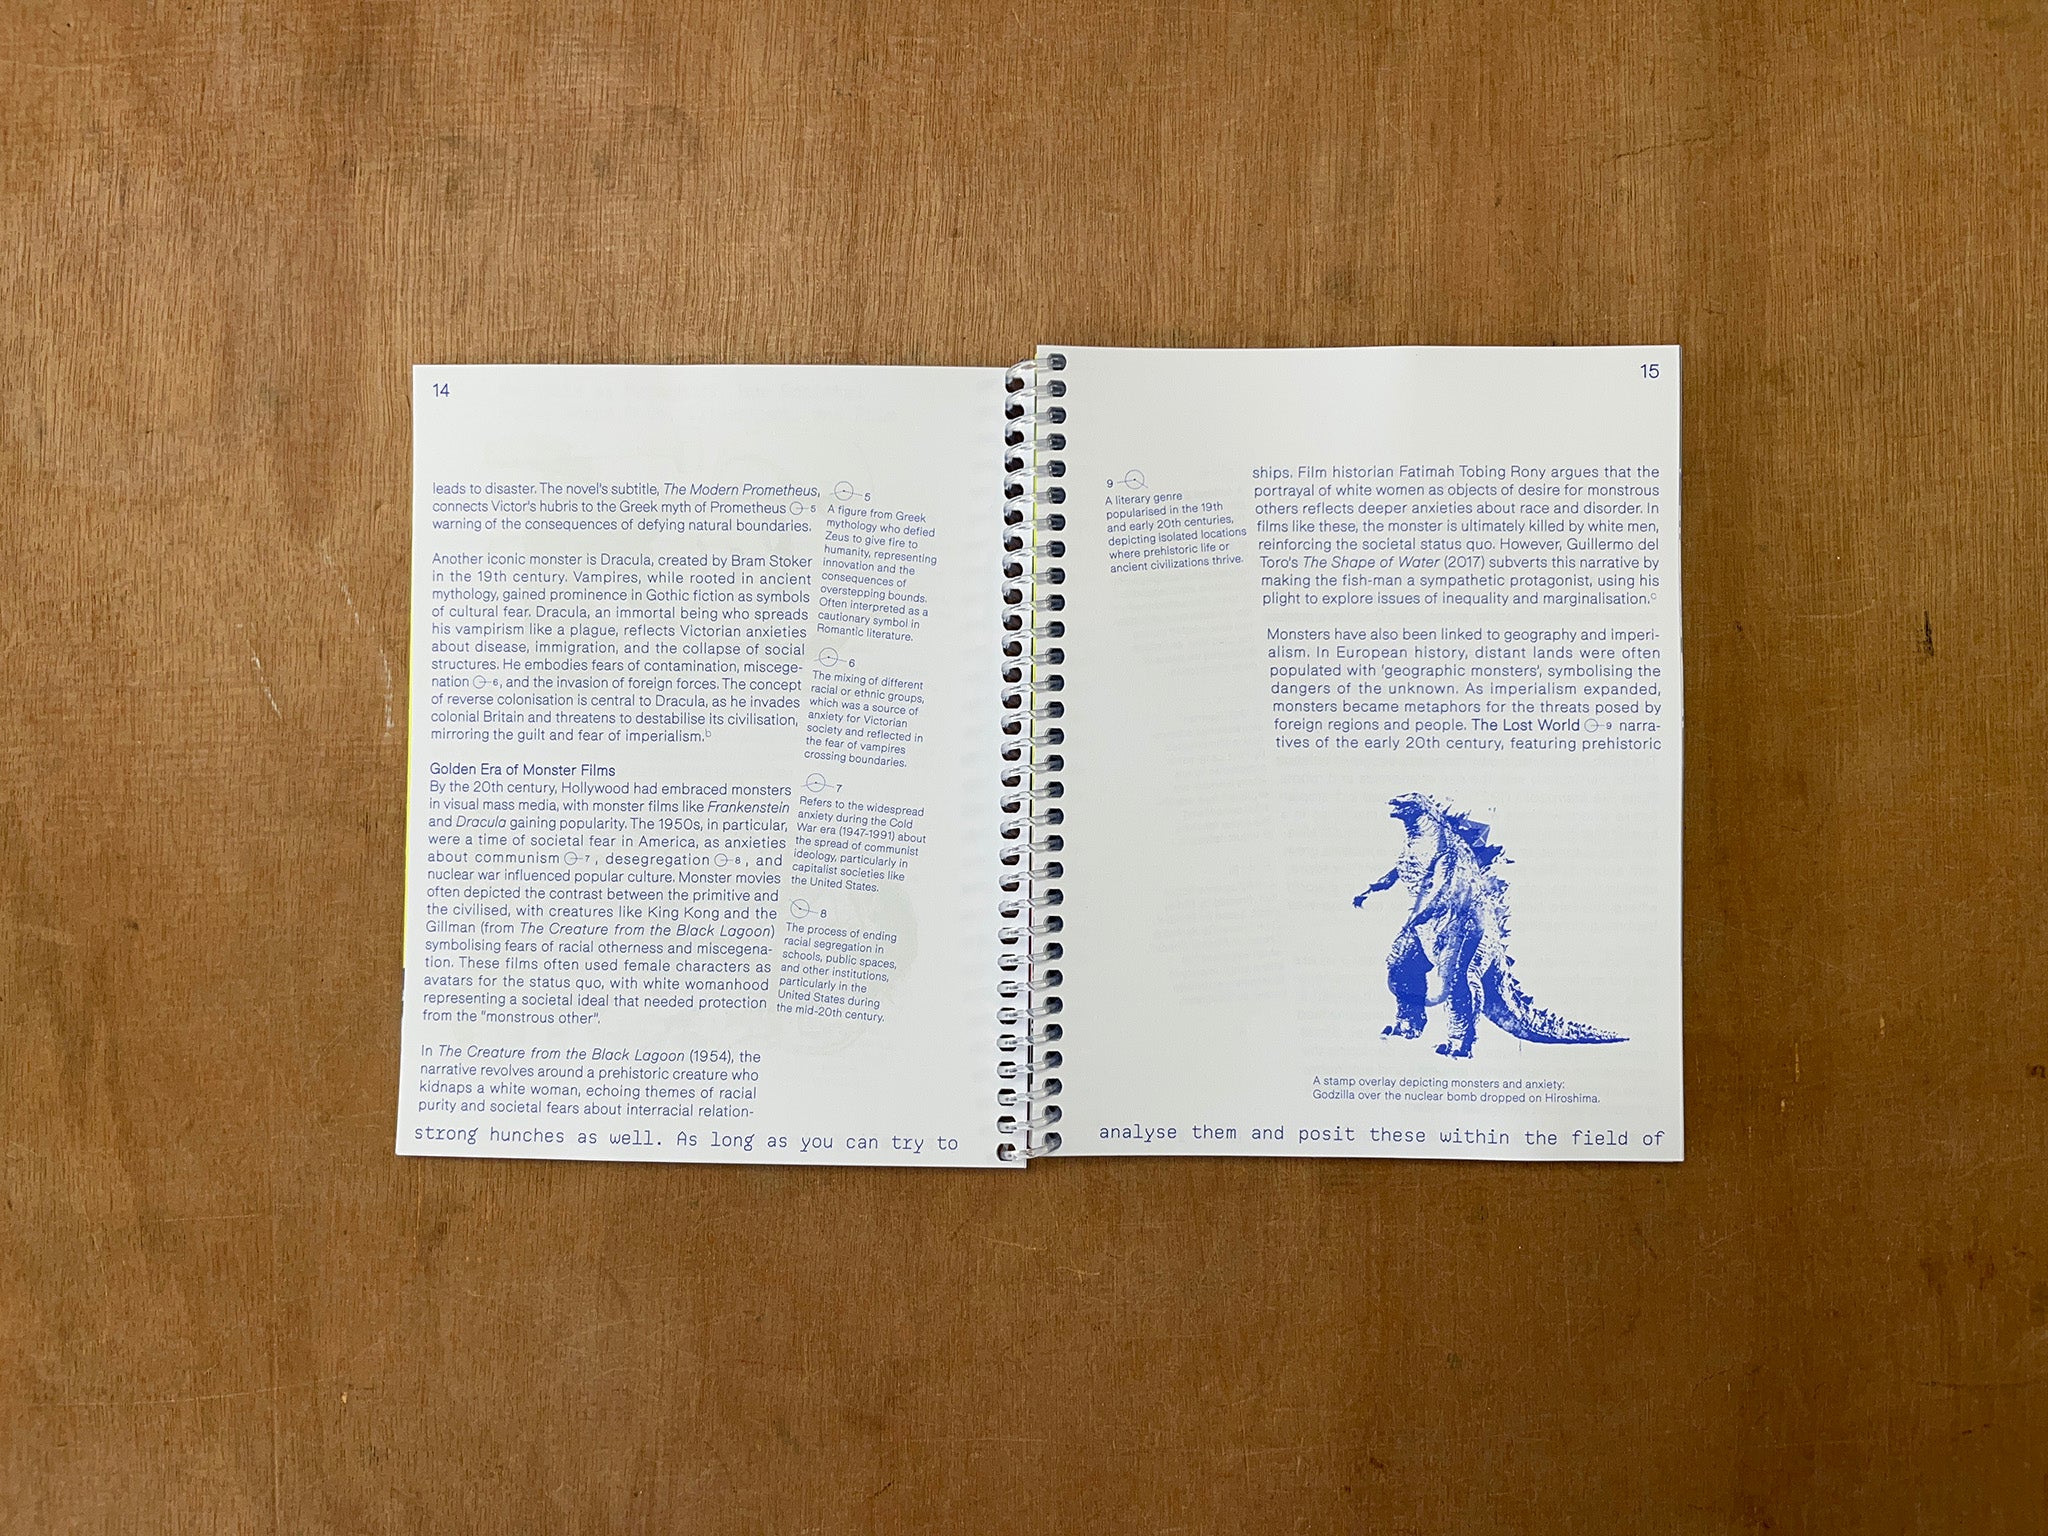 14
leads to disaster. The novel's subtitle, The Modern Prometheus,
connects Victor's hubris to the Greek myth of Prometheus 5
warning of the consequences of defying natural boundaries.
Another iconic monster is Dracula, created by Bram Stoker
in the 19th century. Vampires, while rooted in ancient
mythology, gained prominence in Gothic fiction as symbols
of cultural fear. Dracula, an immortal being who spreads
his vampirism like a plague, reflects Victorian anxieties
about disease, immigration, and the collapse of social
structures. He embodies fears of contamination, miscege-
nation 6, and the invasion of foreign forces. The concept
of reverse colonisation is central to Dracula, as he invades
colonial Britain and threatens to destabilise its civilisation,
mirroring the guilt and fear of imperialism.b
Golden Era of Monster Films
By the 20th century, Hollywood had embraced monsters
in visual mass media, with monster films like Frankenstein
and Dracula gaining popularity. The 1950s, in particular,
were a time of societal fear in America, as anxieties
about communism 7, desegregation 8, and
nuclear war influenced popular culture. Monster movies
often depicted the contrast between the primitive and
the civilised, with creatures like King Kong and the
Gillman (from The Creature from the Black Lagoon)
symbolising fears of racial otherness and miscegena-
tion. These films often used female characters as
avatars for the status quo, with white womanhood
representing a societal ideal that needed protection
from the "monstrous other".
In The Creature from the Black Lagoon (1954), the
narrative revolves around a prehistoric creature who
kidnaps a white woman, echoing themes of racial
purity and societal fears about interracial relation-
5
A figure from Greek
mythology who defied
Zeus to give fire to
humanity, representing
innovation and the
consequences of
overstepping bounds.
Often interpreted as a
cautionary symbol in
Romantic literature.
6
The mixing of different
racial or ethnic groups,
which was a source of
anxiety for Victorian
society and reflected in
the fear of vampires
crossing boundaries.
7
Refers to the widespread
anxiety during the Cold
War era (1947-1991) about
the spread of communist
ideology, particularly in
capitalist societies like
the United States.
8
The process of ending
racial segregation in
schools, public spaces,
and other institutions,
particularly in the
United States during
the mid-20th century.
strong hunches as well. As long as you can try to
15
9
A literary genre
popularised in the 19th
and early 20th centuries,
depicting isolated locations
where prehistoric life or
ancient civilizations thrive.
ships. Film historian Fatimah Tobing Rony argues that the
portrayal of white women as objects of desire for monstrous
others reflects deeper anxieties about race and disorder. In
films like these, the monster is ultimately killed by white men,
reinforcing the societal status quo. However, Guillermo del
Toro's The Shape of Water (2017) subverts this narrative by
making the fish-man a sympathetic protagonist, using his
plight to explore issues of inequality and marginalisation.c
Monsters have also been linked to geography and imperi-
alism. In European history, distant lands were often
populated with 'geographic monsters', symbolising the
dangers of the unknown. As imperialism expanded,
monsters became metaphors for the threats posed by
foreign regions and people. The Lost World 9 narra-
tives of the early 20th century, featuring prehistoric
A stamp overlay depicting monsters and anxiety:
Godzilla over the nuclear bomb dropped on Hiroshima.
analyse them and posit these within the field of